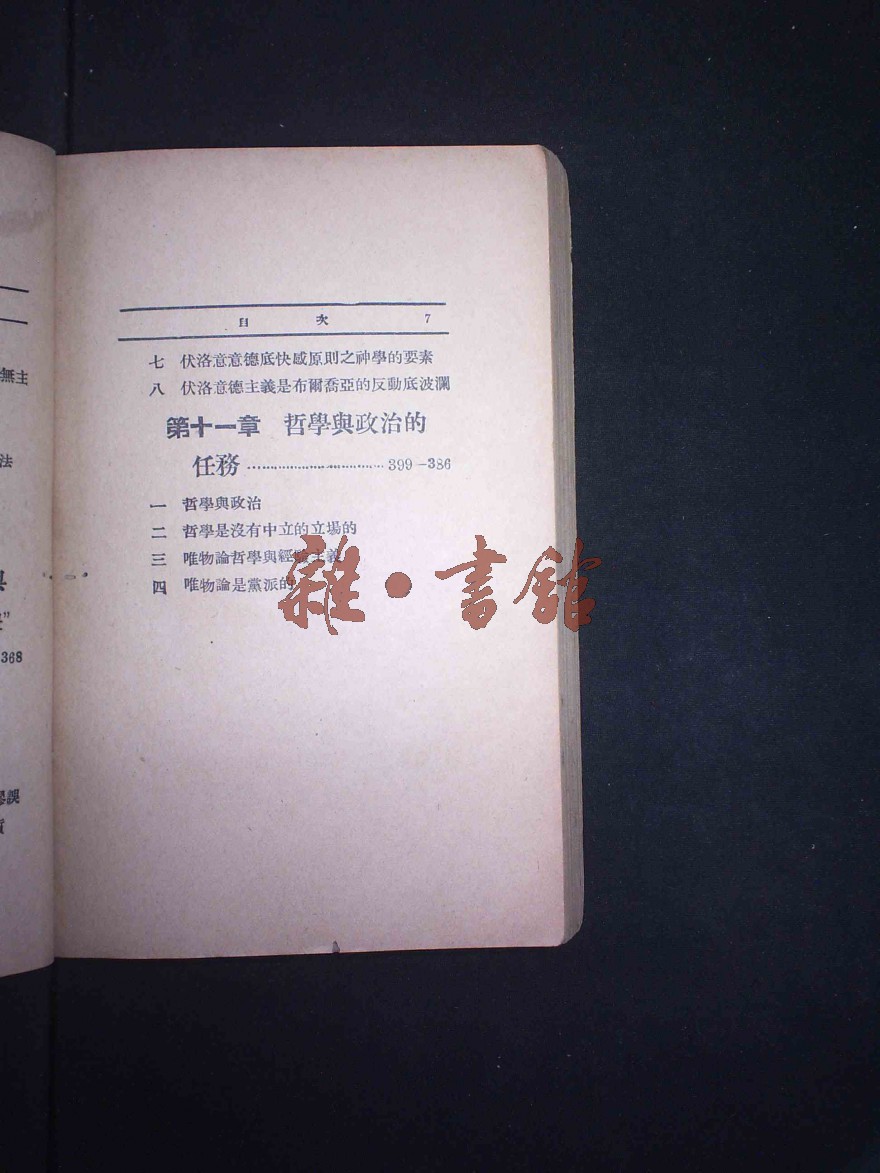 無主
法
與
”
368
謬誤
目 次 7
七 伏洛意意德底快感原則之神學的要素
八 伏洛意德主義是布爾喬亞的反動底波瀾
第十一章 哲學與政治的
任務 ................................ 399-386
一 哲學與政治
二 哲學是沒有中立的立場的
三 唯物論哲學與經驗主義
四 唯物論是黨派的
雜·書館